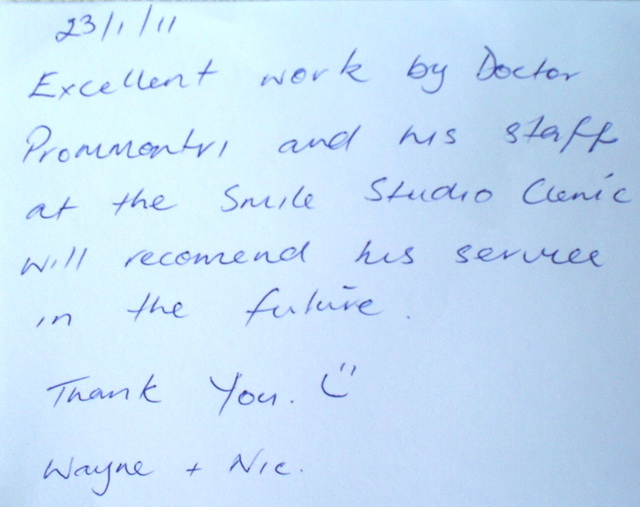 23/1/11
Excellent work by Doctor
Prommontri and his staff
at the Smile Studio Clenic
will recomend his servicee
in the future.
Thank You. :)
Wayne + Nic.